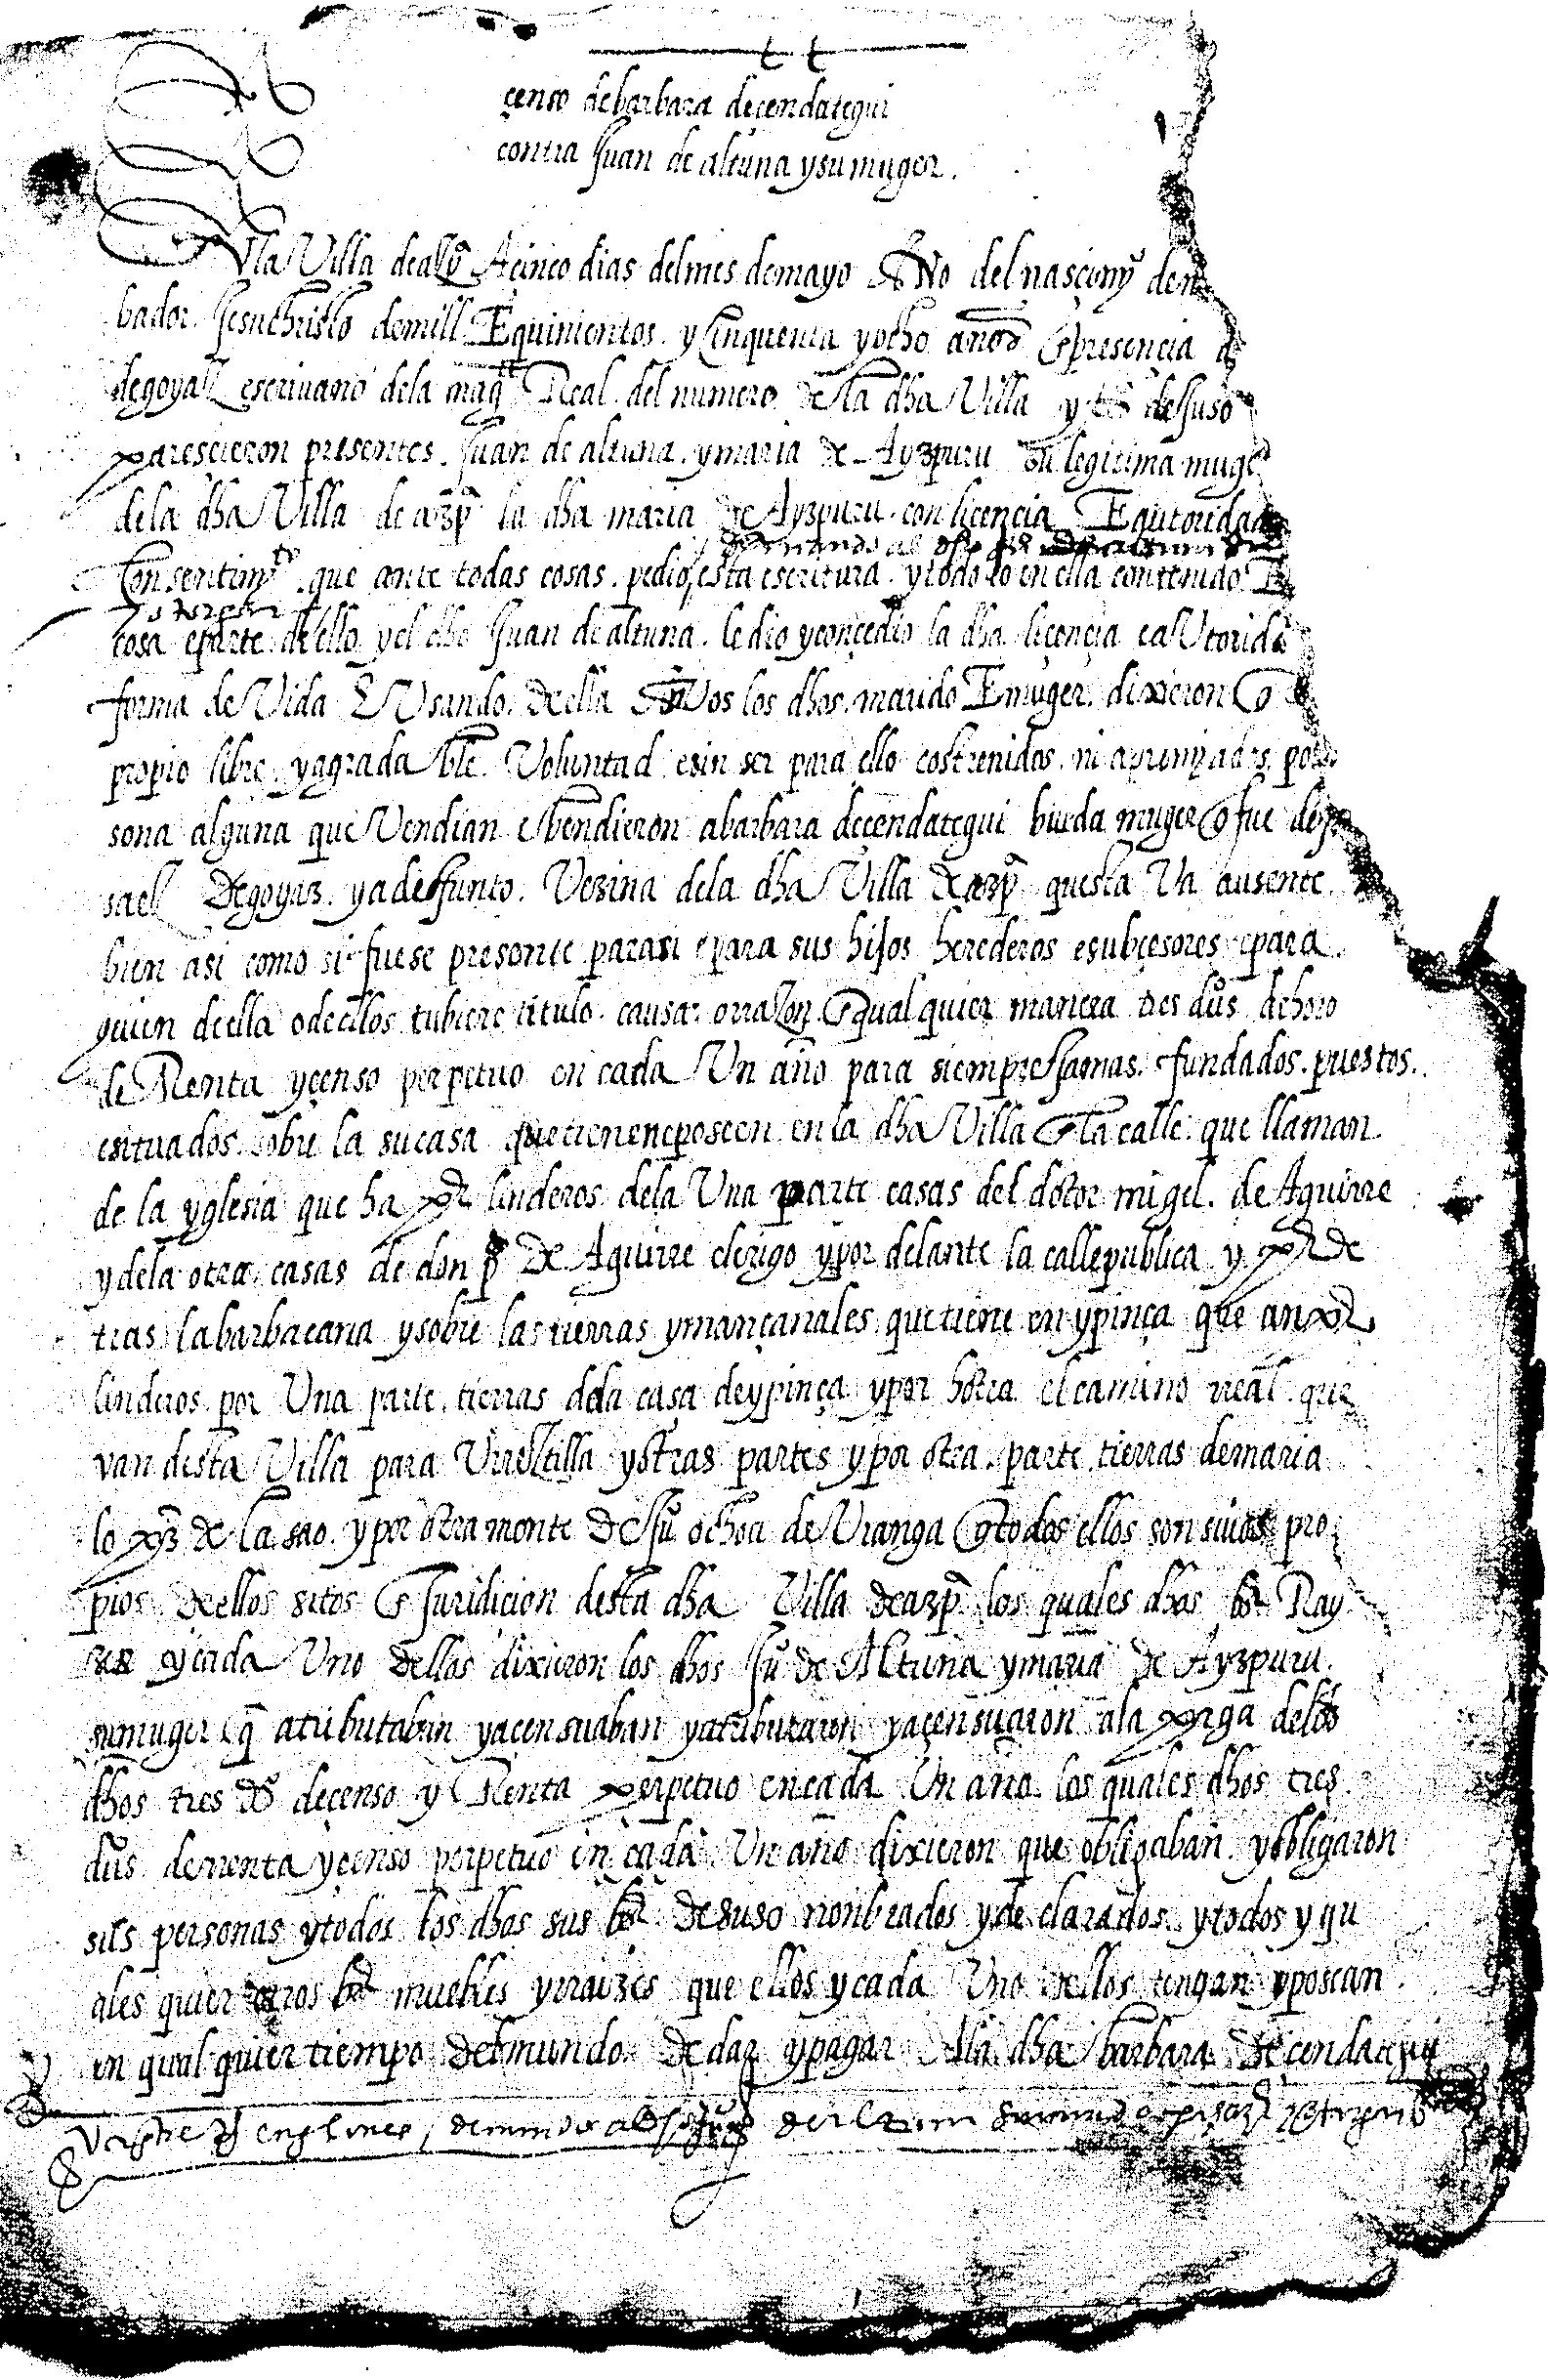 çenso de barbara de çendategui
contra Juan de altuna y su muger.
la Villa de azpa A cinco dias del mes de mayo Año del nasçimyo de n
bador Jesuchristo de mill E quinientos y Cinquenta y ocho años En presençia d
de goyaz escrivano de la magt Real del numero de la dha Villa y ts de suso
paresçieron presentes Juan de altuna y maria de Ayzpuru su legitima muge
de la dha Villa de azpa la dha maria de Ayzpuru con liçençia E autoridad
demando al dho
Consentimyto que ante todas cosas pedio esta escritura y todo lo en ella contenido E
y otorgar
cosa e parte de ello y el dho Juan de altuna le dio y conçedio la dha liçençia e aVtorida
forma deVida E Vsando de ella anVos los dhos marido E muger dixieron q
propio libre y agradable Voluntad e sin ser para ello costrenidos ni apremyados por
sona alguna que Vendian e bendieron a barbara de çendategui biuda muger q fue de
sael de goyaz ya deffunto Vezina de la dha Villa de azpa questa Va ausente
bien asi como si fuese presente para si e para sus hijos herederos e subçesores e para
quien de ella o de ellos tubiere titulo causa o rrazon En qualquier manera tres dus de horo
de Renta y çenso perpetuo en cada Vn año para siempre Jamas fundados puestos
e situados sobre la su casa que tienen e poseen en la dha Villa En la calle que llaman
de la yglesia que ha por linderos de la Vna parte casas del dotor migel de Aguirre
y de la otra casas de don po de Aguirre clerigo y por delante la calle publica y por de
tras la barbacana y sobre las tierras y mançanales que tiene en ypinça que an por
linderos por Vna parte tierras de la casa de ypinça y por hotra el camino rreal que
van desta Villa para Vrrestilla y otras partes y por otra parte tierras de maria
lopez de la sao y por otra monte de Ju ochoa de Vranga q todos ellos son suios pro
pios de ellos sitos En Juridiçion desta dha Villa de azpa los quales dhos bs Ray
zes y cada Vno dellos dixieron los dhos Ju de Altuna y maria de Ayzpuru
su muger q atributaban y açensuaban y atributaron y açensuaron a la paga de los
dhos tres ds de çenso y Renta perpetuo en cada Vn año los quales dhos tres
dus de rrenta y çenso perpetuo en cada Vn año dixieron que obligaban y obligaron
sus personas y todos los dhos sus bs de suso nonbrados y de clarados y todos y qu
ales quier otros bs muebles y rraizes que ellos y cada Vno dellos tengan y posean
en qual quier tiempo del mundo de dar y pagar A la dha barbara de çendategui